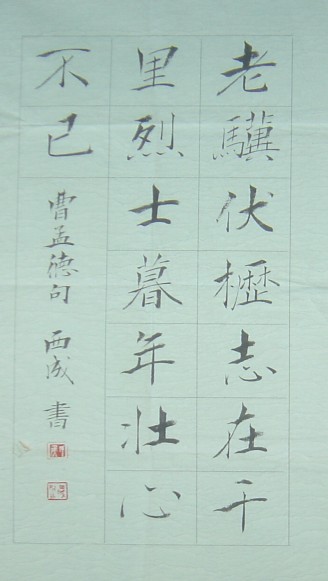 老驥伏櫪志在千
里烈士暮年壯心
不已曹孟德句西成書